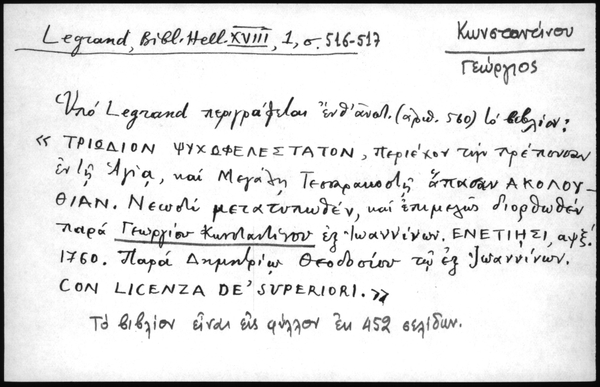 Legrand, Bibl. Hell. XVIII, 1, σ. 516-517
Κωνσταντίνου
Γεώργιος
Ὑπό Legrand περιγράφεται ἐνθ' ἀνωτ. (ἀριθ. 560) τό βιβλίον:
« ΤΡΙΩΔΙΟΝ ΨΥΧΩΦΕΛΕΣΤΑΤΟΝ, περιέχον τήν πρέπουσαν
ἐν τῇ Ἁγίᾳ, καί Μεγάλῃ Τεσσαρακοστῇ ἅπασαν ΑΚΟΛΟΥ-
ΘΙΑΝ. Νεωστί μετατυπωθέν, καί ἐπιμελῶς διορθωθέν
παρά Γεωργίου Κωνσταντίνου ἐξ Ἰωαννίνων. ΕΝΕΤΙΗΣΙ, αψξ.
1760. Παρά Δημητρίῳ Θεοδοσίου τῷ ἐξ Ἰωαννίνων.
CON LICENZA DE' SUPERIORI. »
Τό βιβλίον εἶναι εἰς φύλλον ἐκ 452 σελίδων.